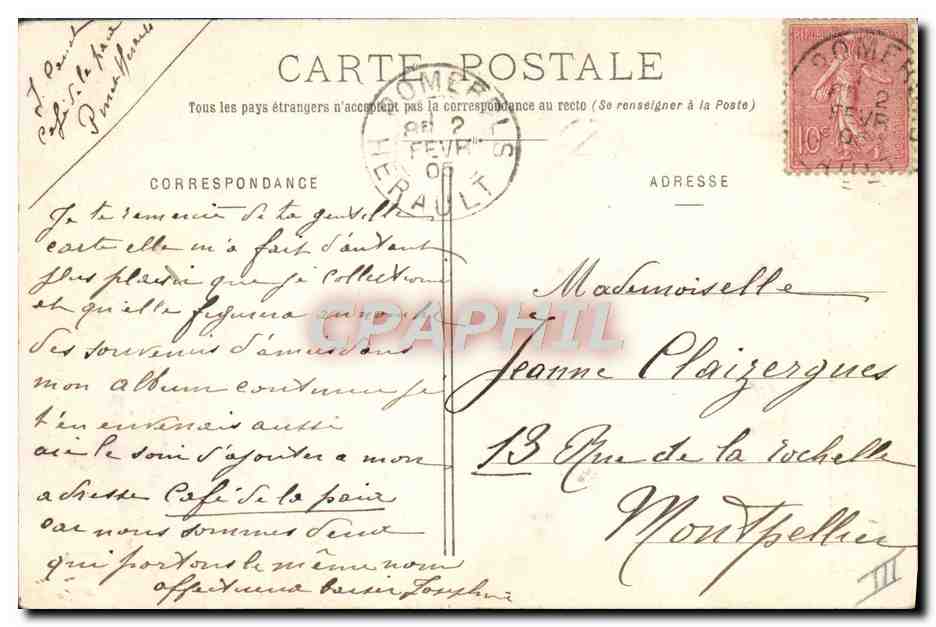 CARTE POSTALE
Tous les pays étrangers n'acceptent pas la correspondance au recto (Se renseigner à la Poste)
Café de la paix
HERAULT
2
FEVR
05
10c
CORRESPONDANCE
ADRESSE
Je te remercie de ta gentille
carte elle m'a fait d'autant
plus plaisir que je collectionne
et qu'elle figurera au nombre
des souvenirs d'amies dans
mon album continue je
t'en enverrais aussi
aie le soin d'ajouter a mon
adresse Café de la paix
car nous sommes deux
qui portons le même nom
affectueux baiser Joséphine
Mademoiselle
Jeanne Claizergues
13 Rue de la Rochelle
Montpellier
III
CPAPHIL